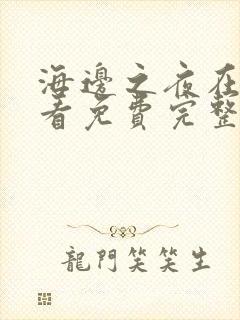 海邊之夜在
看免費完整
龍門笑笑生